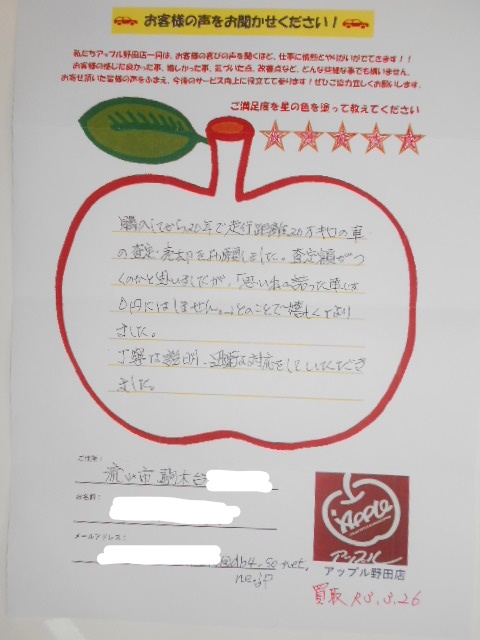 お客様の声をお聞かせください！
私たちアップル野田店一同は、お客様の喜びの声を聞くほど、仕事に情熱とやりがいがでてきます！！
お客様の感じた良かった事、嬉しかった事、気づいた点、改善点など、どんな些細な事でも構いません。
お寄せ頂いた皆様の声をふまえ、今後のサービス向上に役立てて参ります！ぜひご協力宜しくお願いします。
ご満足度を星の色を塗って教えてください
購入してから20年で走行距離20万キロの車
の査定・売却をお願いしました。査定額がつ
くのかと思いましたが、「思い出の詰った車は
0円にはしません。」とのことで嬉しくなり
ました。
丁寧な説明、迅速な対応をしていただき
ました。
ご住所：
流山市駒木台
お名前：
メールアドレス：
@db4.so-net.
ne.jp
APPLE
アップル
アップル野田店
買取 R3.3.26